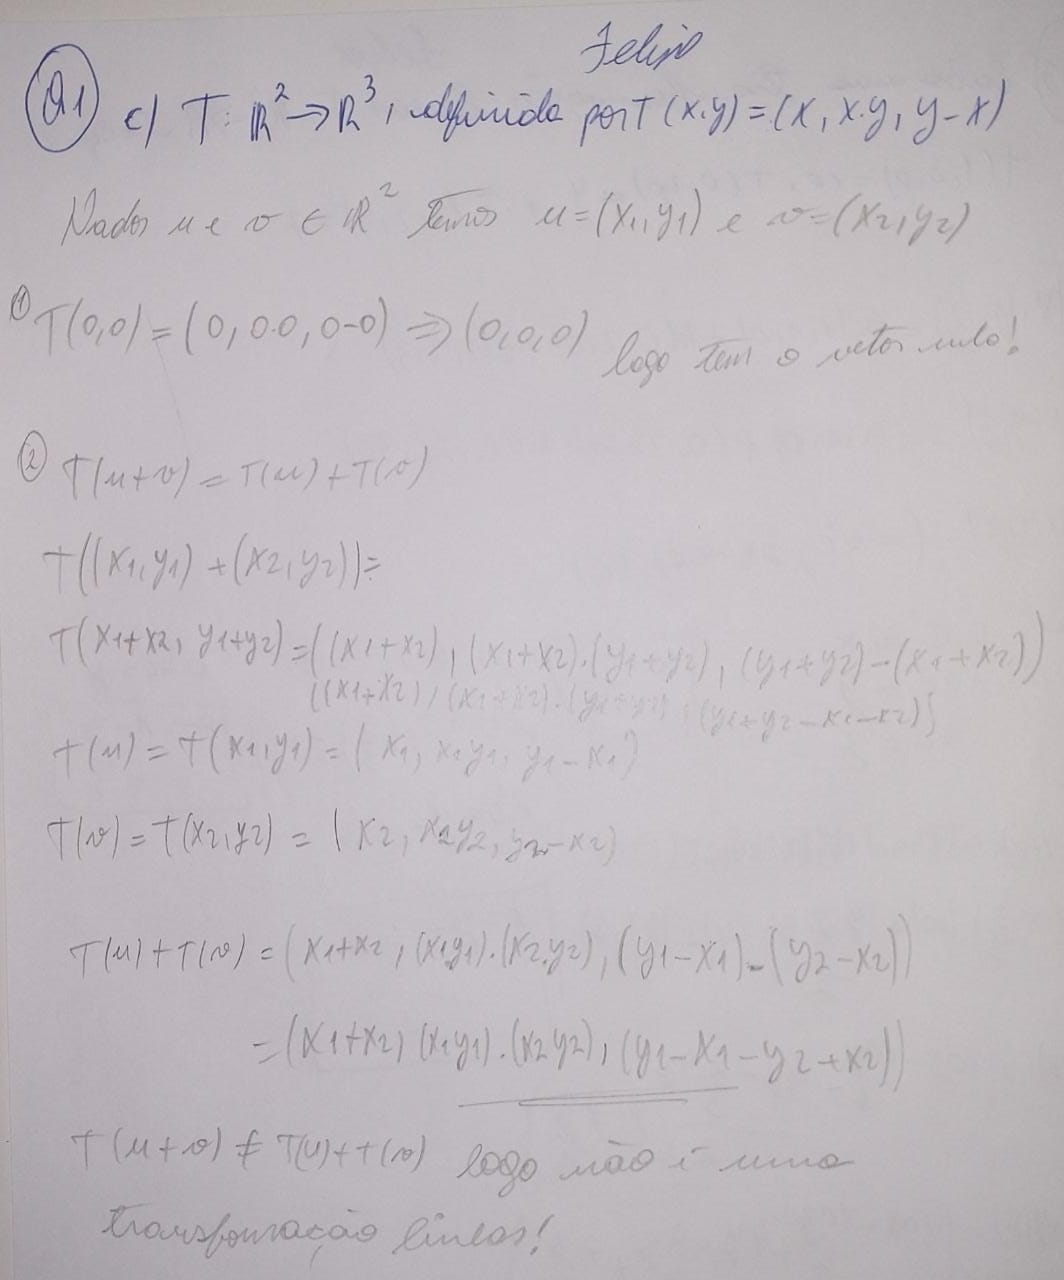 Felipe
Q1 c) T: ℝ² → ℝ³, definida por T(x,y) = (x, x.y, y-x)
Dados u e v ∈ ℝ² temos u=(x1,y1) e v=(x2,y2)
① T(0,0) = (0, 0.0, 0-0) ⇒ (0,0,0) logo tem o vetor nulo!
② T(u+v) = T(u)+T(v)
T((x1,y1)+(x2,y2))=
T(x1+x2, y1+y2) = ((x1+x2), (x1+x2).(y1+y2), (y1+y2)-(x1+x2))
((x1+x2), (x1+x2).(y1+y2), (y1+y2-x1-x2))
T(u) = T(x1,y1) = (x1, x1y1, y1-x1)
T(v) = T(x2,y2) = (x2, x2y2, y2-x2)
T(u)+T(v) = (x1+x2, (x1y1).(x2.y2), (y1-x1)-(y2-x2))
= (x1+x2, (x1y1).(x2y2), (y1-x1-y2+x2))
T(u+v) ≠ T(u)+T(v) logo não é uma
transformação linear!